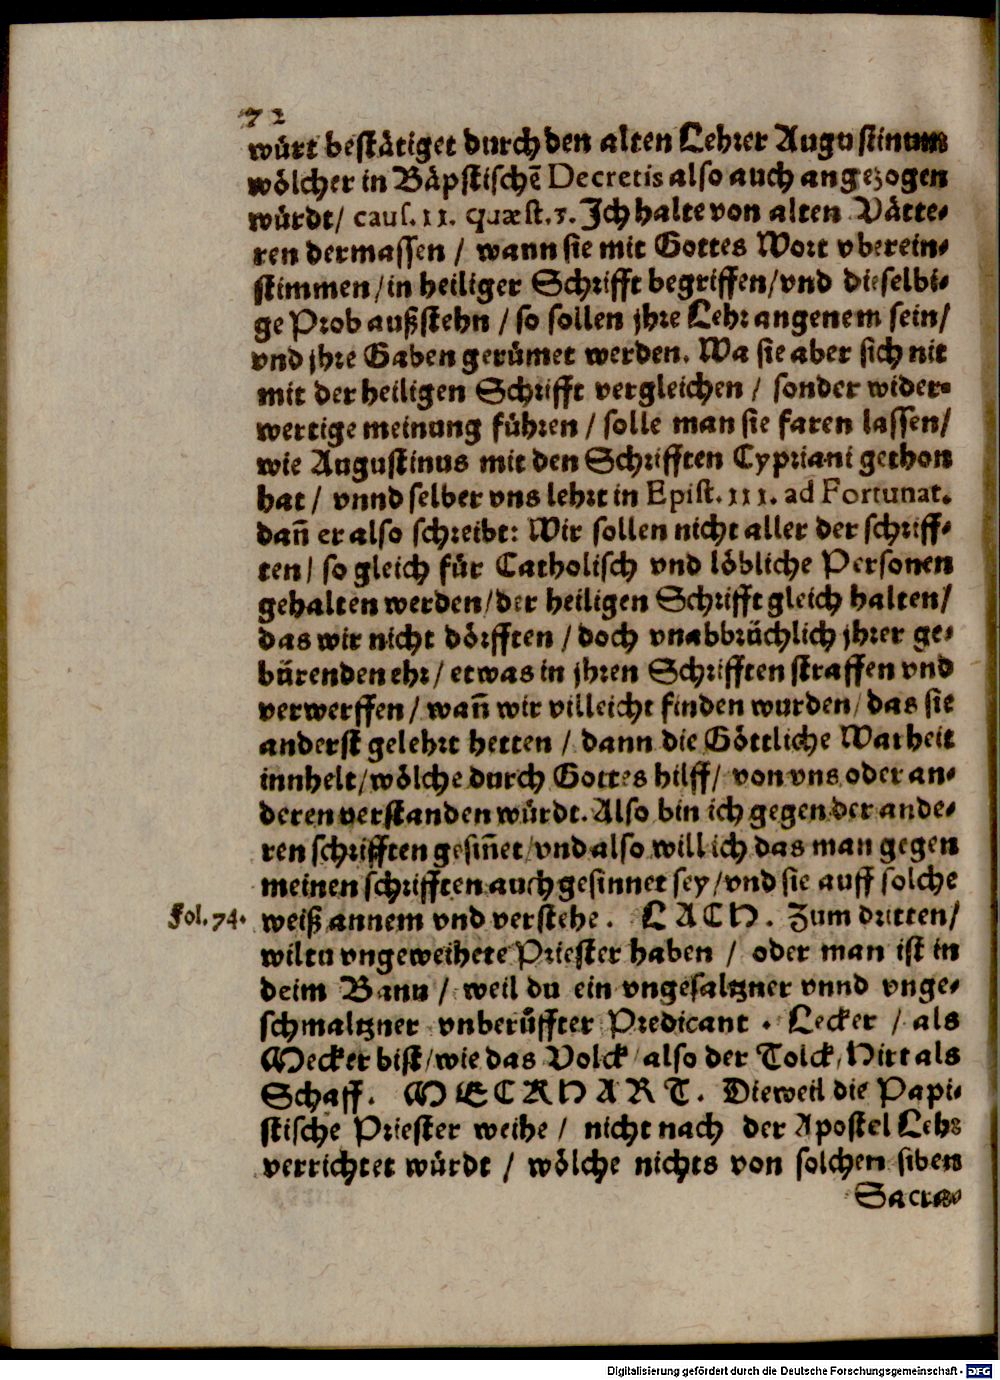 72
würt bestätiget durch den alten Lehrer Augustinum
wölcher in Bäpstischē Decretis also auch angezogen
würdt/ caus. 11. quæst. 3. Jch halte von alten Vätte-
ren dermassen / wann sie mit Gottes Wort vberein-
stimmen/in heiliger Schrifft begriffen/vnd dieselbi-
ge Prob außstehn / so sollen jhre Lehr angenem sein/
vnd jhre Gaben gerümet werden. Wa sie aber sich nit
mit der heiligen Schrifft vergleichen / sonder wider-
wertige meinung führen / solle man sie faren lassen/
wie Augustinus mit den Schrifften Cypriani gethon
hat / vnnd selber vns lehrt in Epist. 111. ad Fortunat.
dañ er also schreibt: Wir sollen nicht aller der schriff-
ten/ so gleich für Catholisch vnd löbliche Personen
gehalten werden/der heiligen Schrifft gleich halten/
das wir nicht dörfften / doch vnabbrüchlich jhrer ge-
bürenden ehr/ etwas in jhren Schrifften straffen vnd
verwerffen / wañ wir villeicht finden wurden/ das sie
anderst gelehrt hetten / dann die Göttliche Warheit
innhelt/wölche durch Gottes hilff/ von vns oder an-
deren verstanden würdt. Also bin ich gegen der ande-
ren schrifften gesiñet/vnd also will ich das man gegen
meinen schrifften auch gesinnet sey/vnd sie auff solche
fol. 74. weiß annem vnd verstehe. LACH. Zum dritten/
wiltu vngeweihete Priester haben / oder man ist in
deim Bann / weil du ein vngesaltzner vnnd vnge-
schmaltzner vnberüffter Predicant. Lecker / als
Mecker bist/wie das Volck/also der Tolck/Hirt als
Schaff. MECKHART. Dieweil die Papi-
stische Priester weihe / nicht nach der Apostel Lehr
verrichtet würdt / wölche nichts von solchen siben
Sacra-
Digitalisierung gefördert durch die Deutsche Forschungsgemeinschaft - DFG